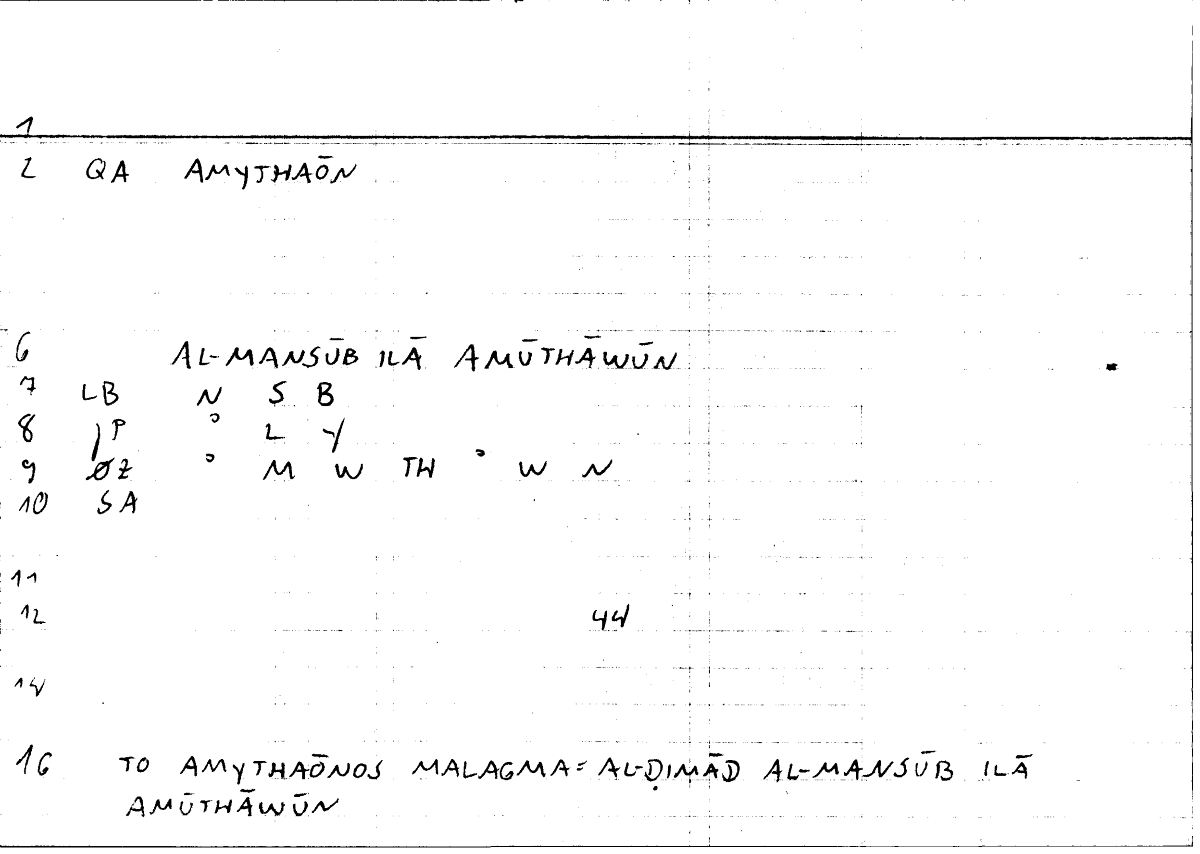 1
2 QA AMYTHAŌN
6 AL-MANSŪB ILĀ AMŪTHĀWŪN
7 LB N S B
8 JP ᵓ L Y
9 ØZ ᵓ M W TH ᵓ W N
10 SA
11
12 44
14
16 TO AMYTHAŌNOS MALAGMA = AL-ḌIMĀD AL-MANSŪB ILĀ
AMŪTHĀWŪN